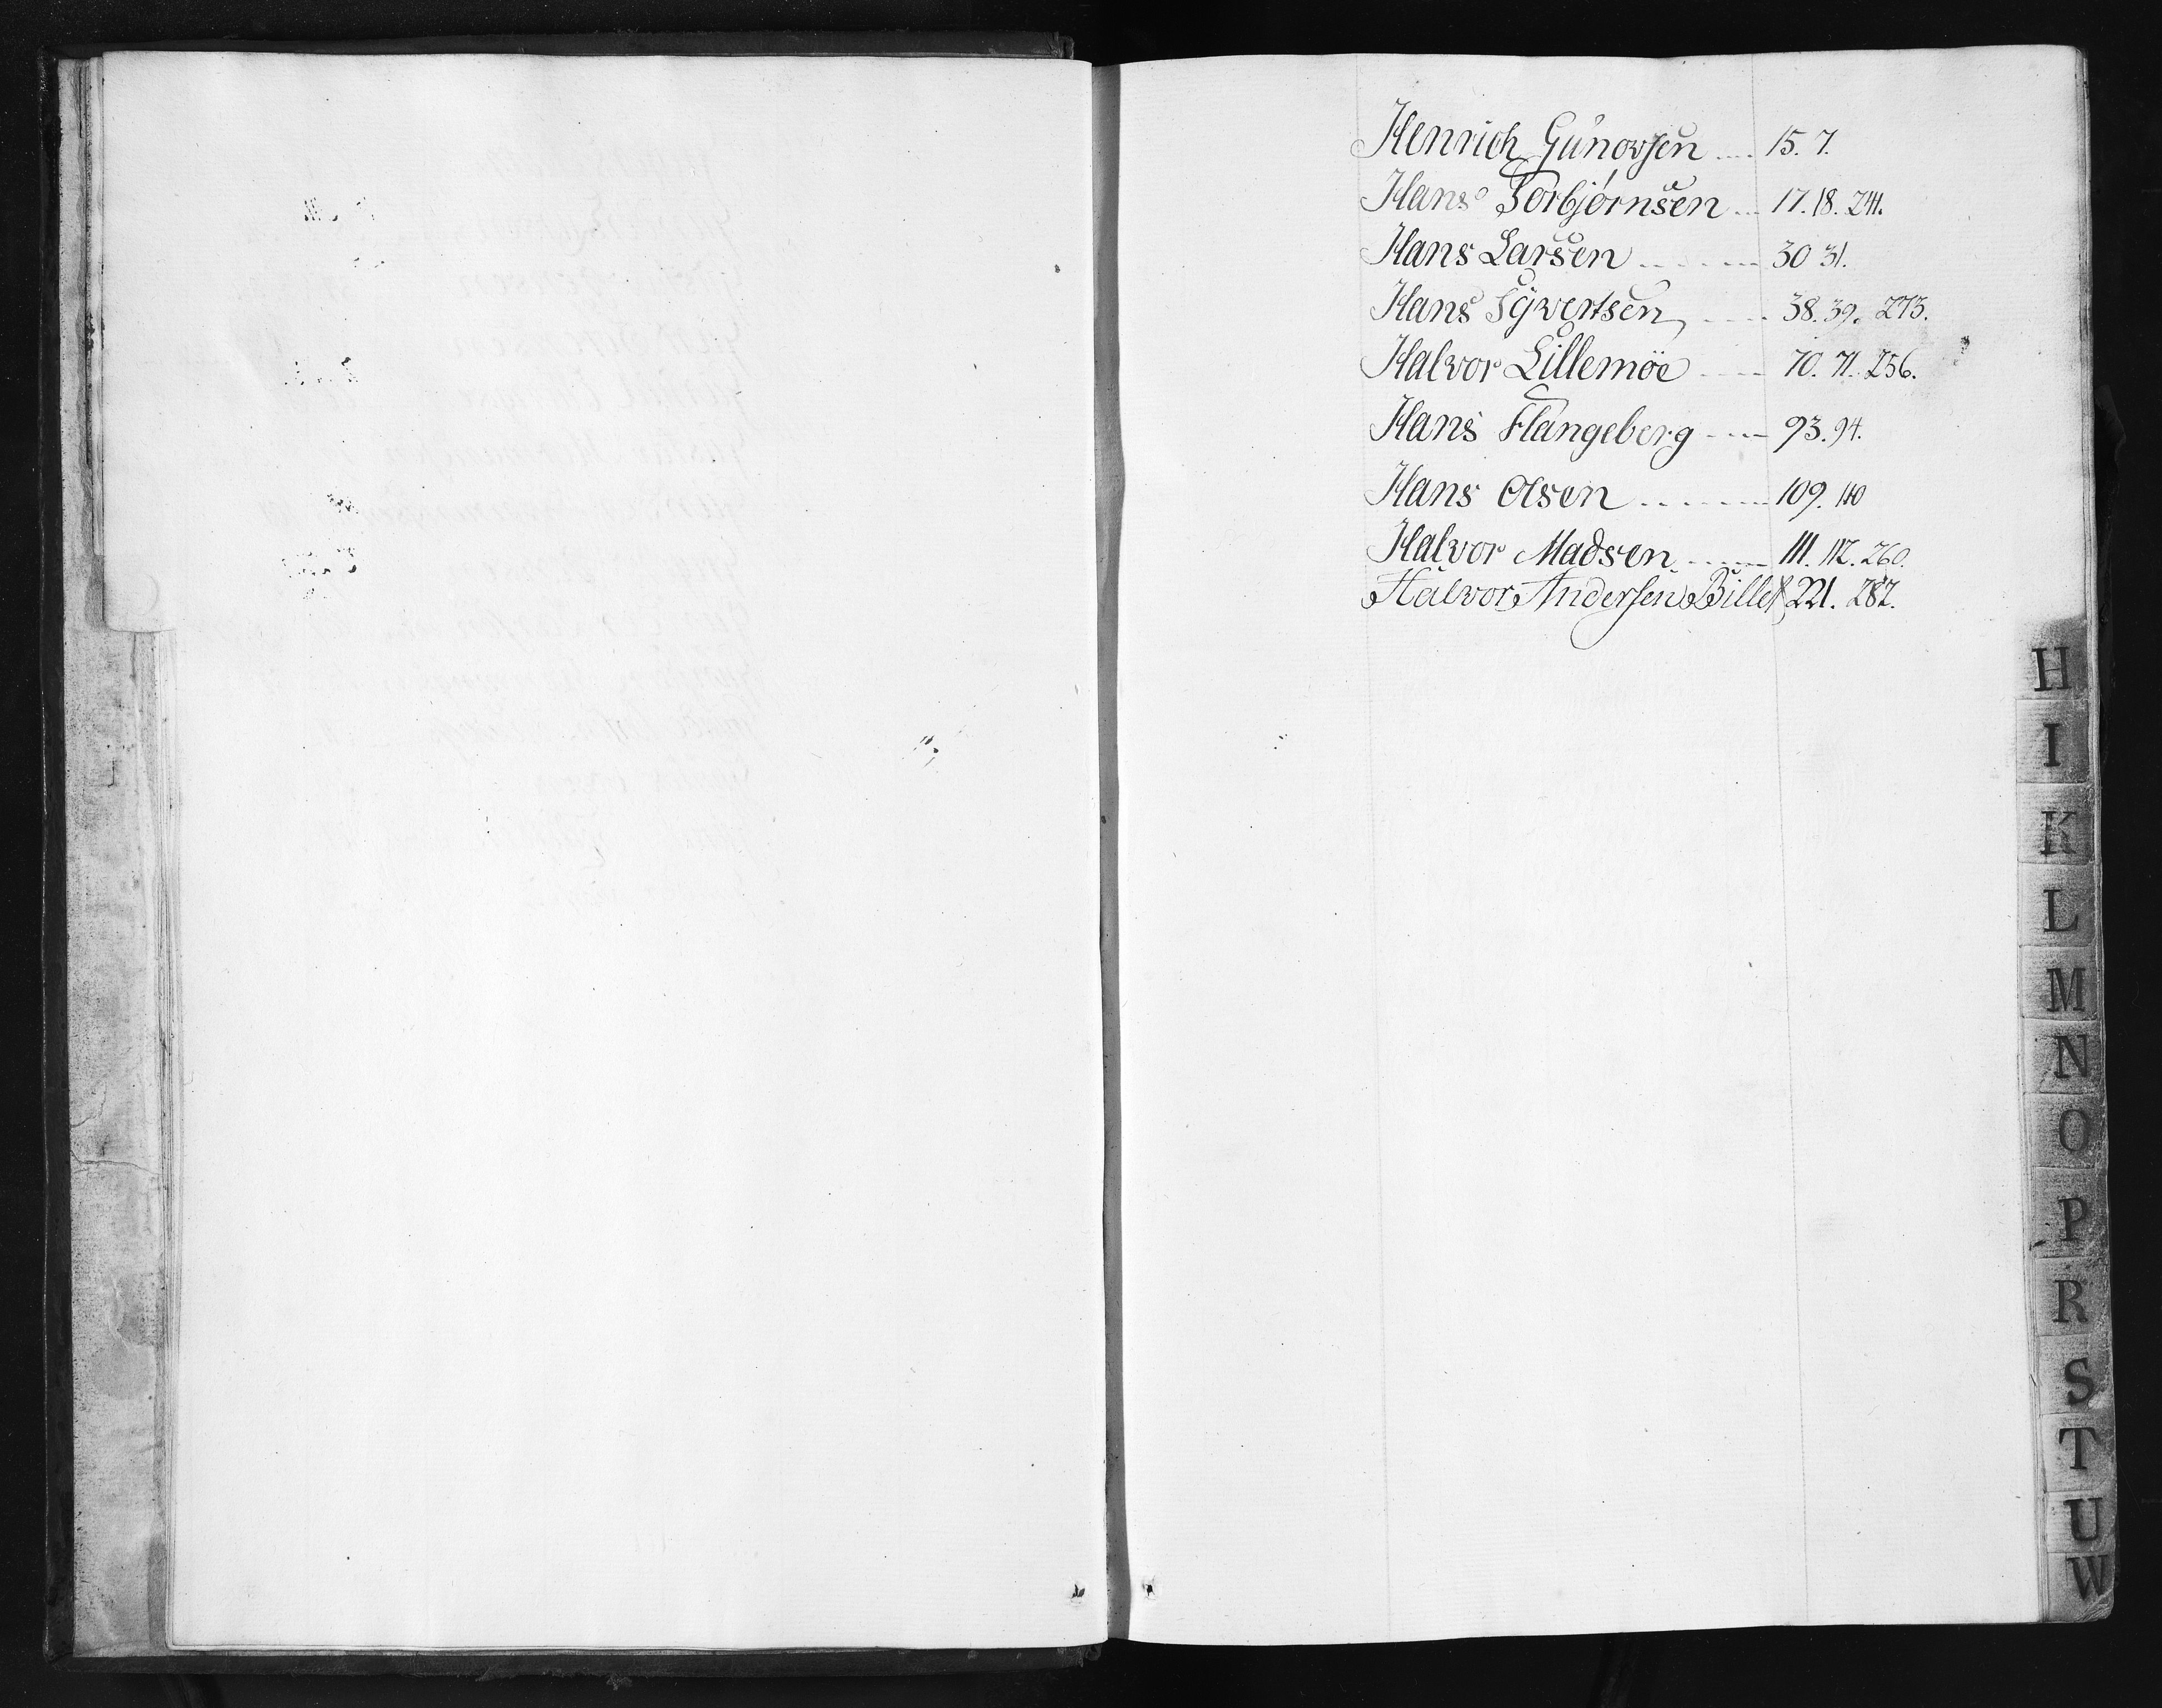 Henrich Gunovsen .... 15. 7.
Hans Torbjørnsen ... 17. 18. 241.
Hans Larsen ....... 30 31.
Hans Sÿvertsen .... 38. 39. 273.
Halvor Lillemöe .... 70. 71. 256.
Hans Flangeberg .... 93. 94.
Hans Olsen ....... 109. 110
Halvor Madsen ...... 111. 112. 260.
Halvor Andersen Billet 221. 282.
H
I
K
L
M
N
O
P
R
S
T
U
W